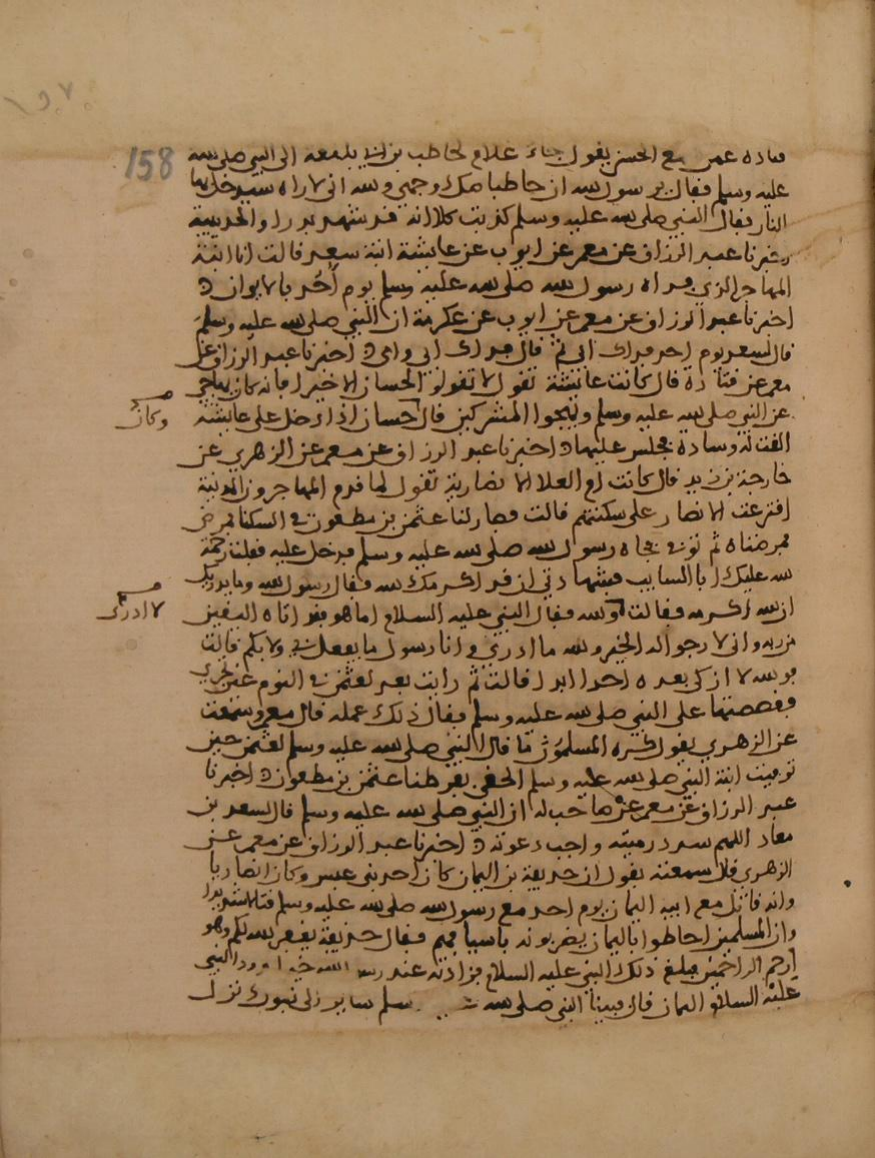 158
قتادة عمن سمع الحسن يقول جاء غلام لحاطب بن بلتعة الى النبي صلى الله
عليه وسلم فقال يرسول الله ان حاطبا وجهي والله انى لا راه سيدخل
النار فقال النبي صلى الله عليه وسلم كذبت كلا انه قد شهد بدرا والحديبية
اخبرنا عبد الرزاق عن معمر عن ايوب عن عايشة ابنة سعد قالت انا ابنة
المهاجر الذي فداه رسول الله صلى الله عليه وسلم يوم أُحُد بالابوان ه
اخبرنا عبد الرزاق عن معمر عن ايوب عن عكرمة ان النبي صلى الله عليه وسلم
قال لسعد يوم احد فداك ابي ثم قال فداك ابي وامي ه اخبرنا عبد الرزاق عن
معمر عن قتادة قال كانت عايشة تقول لا تقولو الحسان الا خيرا فانه كان يهاجي
عن النبي صلى الله عليه وسلم ويهجوا المشركين قال حسان اذا دخل على عايشة
وكان
القت له وسادة فجلس عليها ه اخبرنا عبد الرزاق عن معمر عن الزهري عن
خارجة بن زيد قال كانت ام العلا الانصارية تقول لما قدم المهاجرون المدينة
اقترعت الانصار على سكنتهم قالت فصار لنا عثمن بن مظعون في السكنا فمرض
فمرضناه ثم توفي فجاه رسول الله صلى الله عليه وسلم فدخل عليه فقلت رحمة
الله عليك ابا السايب فشهادتي ان قد اكرمك الله فقال رسول الله وما يدريك
ان الله اكرمه فقالت والله فقال النبي عليه السلام اما هو فقد اتاه اليقين
لا ادري
من ربه وانى لا رجو اله الخير والله ما ادري وانا رسول ما يفعل بي ولا بكم قالت
فوالله لا ازكي بعده احدا ابدا قالت ثم رايت بعد لعثمن في النوم عين تجري
فقصصتها على النبي صلى الله عليه وسلم فقال ذلك عمله قال معمر وسمعت
عن الزهري يقول كره المسلمون ما قال النبي صلى الله عليه وسلم لعثمن حين
توفيت ابنة النبي صلى الله عليه وسلم الحقي بفرطنا عثمن بن مظعون ه اخبرنا
عبد الرزاق عن معمر عن صاحب له ان النبي صلى الله عليه وسلم قال لسعد بن
معاد اللهم سدد رميته واجب دعوته ه اخبرنا عبد الرزاق عن معمر عن
الزهري قال سمعته يقول ان حذيفة بن اليمان كان احد بني عبس وكان انصاريا
وانه قاتل مع ابيه اليمان يوم احد مع رسول الله صلى الله عليه وسلم قتالا شديدا
وان المسلمين احاطوا باليمان يضربونه باسيافهم فقال حذيفة يغفر الله لكم وهو
ارحم الراحمين فبلغ ذلك النبي عليه السلام فزادته عند رسول الله خيرا النبي
عليه السلام اليمان قال فبينا النبي صلى الله وسلم ساير الى تبوك نزل